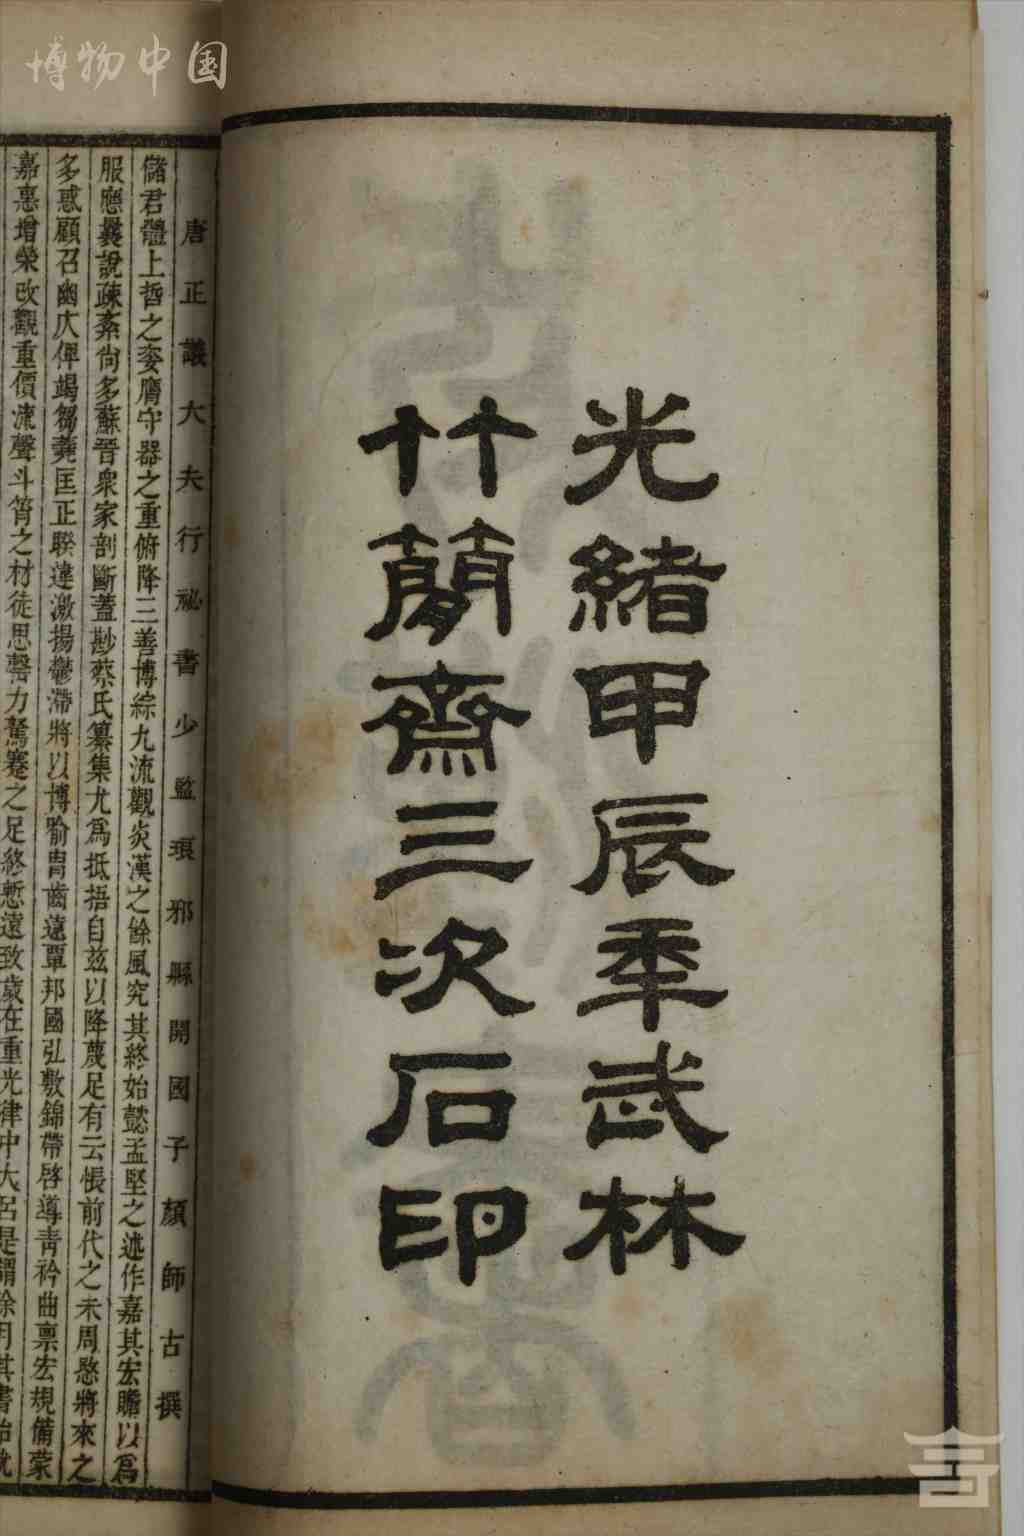 博物中国
光緒甲辰年武林
竹簡齋三次石印
唐正議大夫行祕書少監琅邪縣開國子顏師古撰
儲君體上哲之姿膺守器之重俯降三善博綜九流觀炎漢之餘風究其終始懿孟堅之述作嘉其宏贍以爲
服應曩說疎紊尚多蘇晉衆家剖斷蓋尠蔡氏纂集尤爲抵捂自茲以降蔑足有云悵前代之未周愍將來之
多惑顧召幽仄俾竭芻蕘匡正睽違激揚鬱滯將以博喻胄齒遠覃邦國弘敷錦帶啓導青衿曲稟宏規備蒙
嘉惠增榮改觀重價流聲斗筲之材徒思罄力駑蹇之足終慙遠致歲在重光律中大呂是謂涂月其書始就